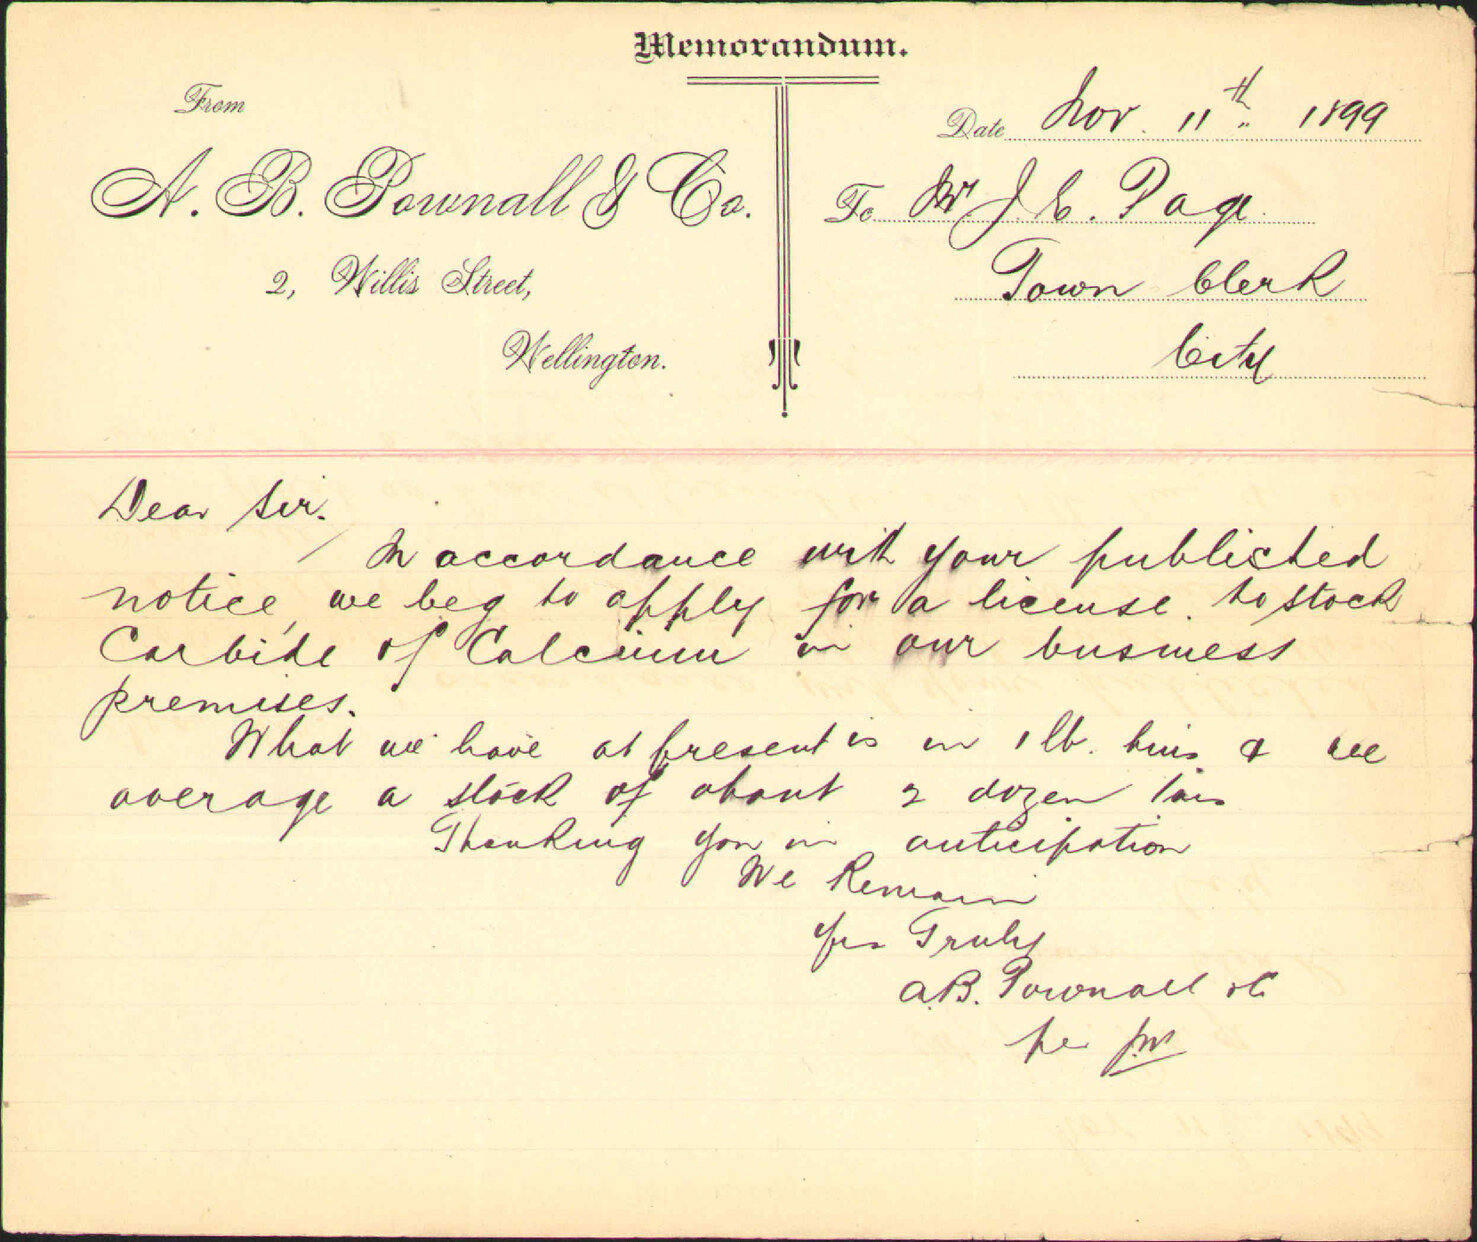 Memorandum.
From
A. B. Pownall & Co.
2, Willis Street,
Wellington.
Date Nov. 11th 1899
To Mr J. E. Page
Town Clerk
City
Dear Sir.
In accordance with your published
notice, we beg to apply for a license to stock
Carbide of Calcium in our business
premises.
What we have at present is in 1 lb. tins & we
average a stock of about 2 dozen tins
Thanking you in anticipation
We Remain
Yrs Truly
A.B. Pownall & Co
per